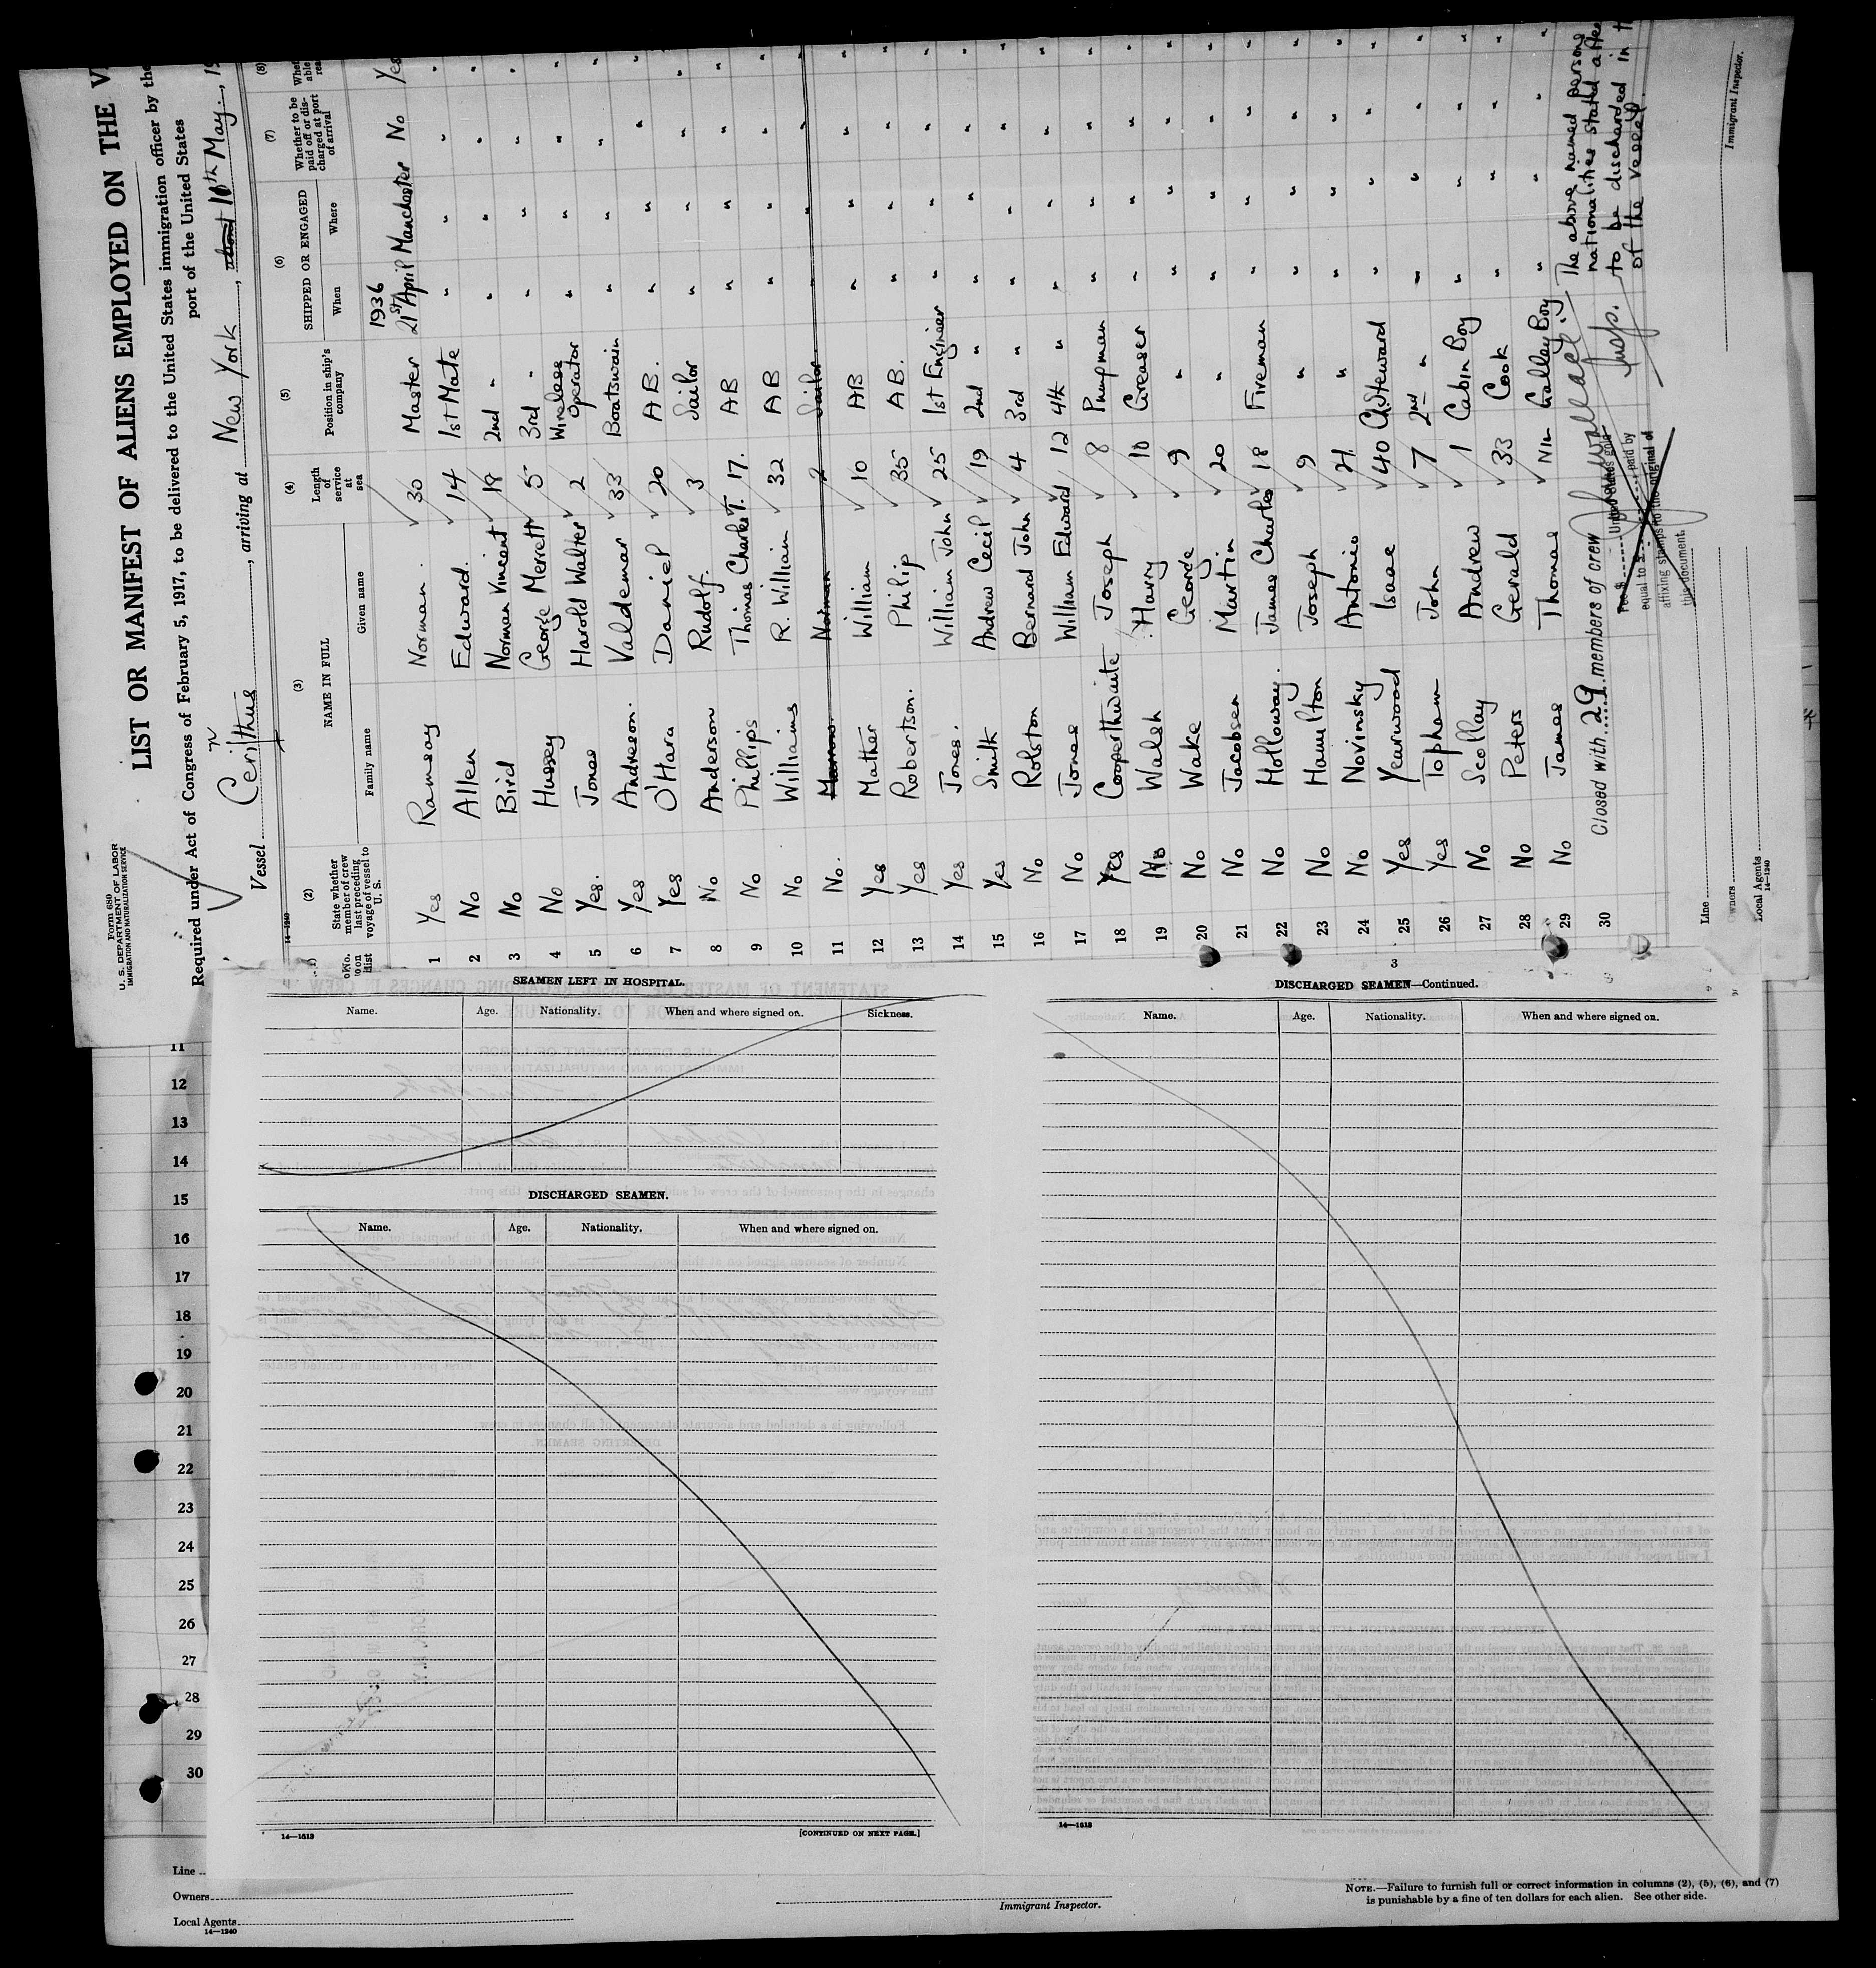 Form 680
U. S. DEPARTMENT OF LABOR
IMMIGRATION AND NATURALIZATION SERVICE
LIST OR MANIFEST OF ALIENS EMPLOYED ON THE
Required under Act of Congress of February 5, 1917, to be delivered to the United States immigration officer by the
port of the United States
Vessel Cerinthus, arriving at New York, 10th May., 19
14-1240
(2) (3) (4) (5) (6) (7) (8)
State whether member of crew last preceding voyage of vessel to U. S.
NAME IN FULL
Family name Given name
Length of service at sea
Position in ship's company
SHIPPED OR ENGAGED
When Where
Whether to be paid off or discharged at port of arrival
1936
1 Yes Ramsay Norman. 30 Master 21st April Manchester No Yes
2 No Allen Edward. 14 1st Mate " " " "
3 No Bird Norman Vincent 18 2nd " " " " "
4 No Hussey George Merrett 5 3rd " " " " "
5 Yes. Jones Harold Walter 2 Wireless Operator " " " "
6 Yes Andreson. Valdemar 33 Boatswain " " " "
7 Yes O'Hara Daniel 20 A B. " " " "
8 No Anderson Rudolf. 3 Sailor " " " "
9 No Phillips Thomas Charles T. 17. AB " " " "
10 No Williams R. William 32 A B " " " "
11 No. Norman 2 Sailor
12 Yes Mather William 10 AB " " " "
13 Yes Robertson. Philip 35 A B. " " " "
14 Yes Jones. William John 25 1st Engineer " " " "
15 Yes Smith Andrew Cecil 19 2nd " " " " "
16 No Rolston Bernard John 4 3rd " " " " "
17 No Jones William Edward 12 4th " " " " "
18 Yes Cooperthwaite Joseph 8 Pumpman " " " "
19 No Walsh Harry 10 Greaser " " " "
20 No Wake George 9 " " " " "
21 No Jacobsen Martin 20 " " " " "
22 No Holloway. James Charles 18 Fireman " " " "
23 No Hamilton Joseph 9 " " " " "
24 No Novinsky Antonio 21 " " " " "
25 Yes Yearwood Isaac 40 Ch.Steward " " " "
26 Yes Topham John 7 2nd " " " " "
27 No Scollay Andrew 1 Cabin Boy " " " "
28 No Peters Gerald 33 Cook " " " "
29 No James Thomas Nil Galley Boy " " " "
30 Closed with 29 members of crew
The above named persons
nationalities stated
to be discharged in
of the vessel.
Insp.
equal to $ paid by
affixing stamps to the original of
this document.
Line
Owners
Local Agents
14-1240
Immigrant Inspector.
3
SEAMEN LEFT IN HOSPITAL.
Name. Age. Nationality. When and where signed on. Sickness.
DISCHARGED SEAMEN.
Name. Age. Nationality. When and where signed on.
14—1613
[CONTINUED ON NEXT PAGE.]
DISCHARGED SEAMEN—Continued.
Name. Age. Nationality. When and where signed on.
14—1613
11
12
13
14
15
16
17
18
19
20
21
22
23
24
25
26
27
28
29
30
Line
Owners
Local Agents
14—1240
Immigrant Inspector.
NOTE.—Failure to furnish full or correct information in columns (2), (5), (6), and (7)
is punishable by a fine of ten dollars for each alien. See other side.